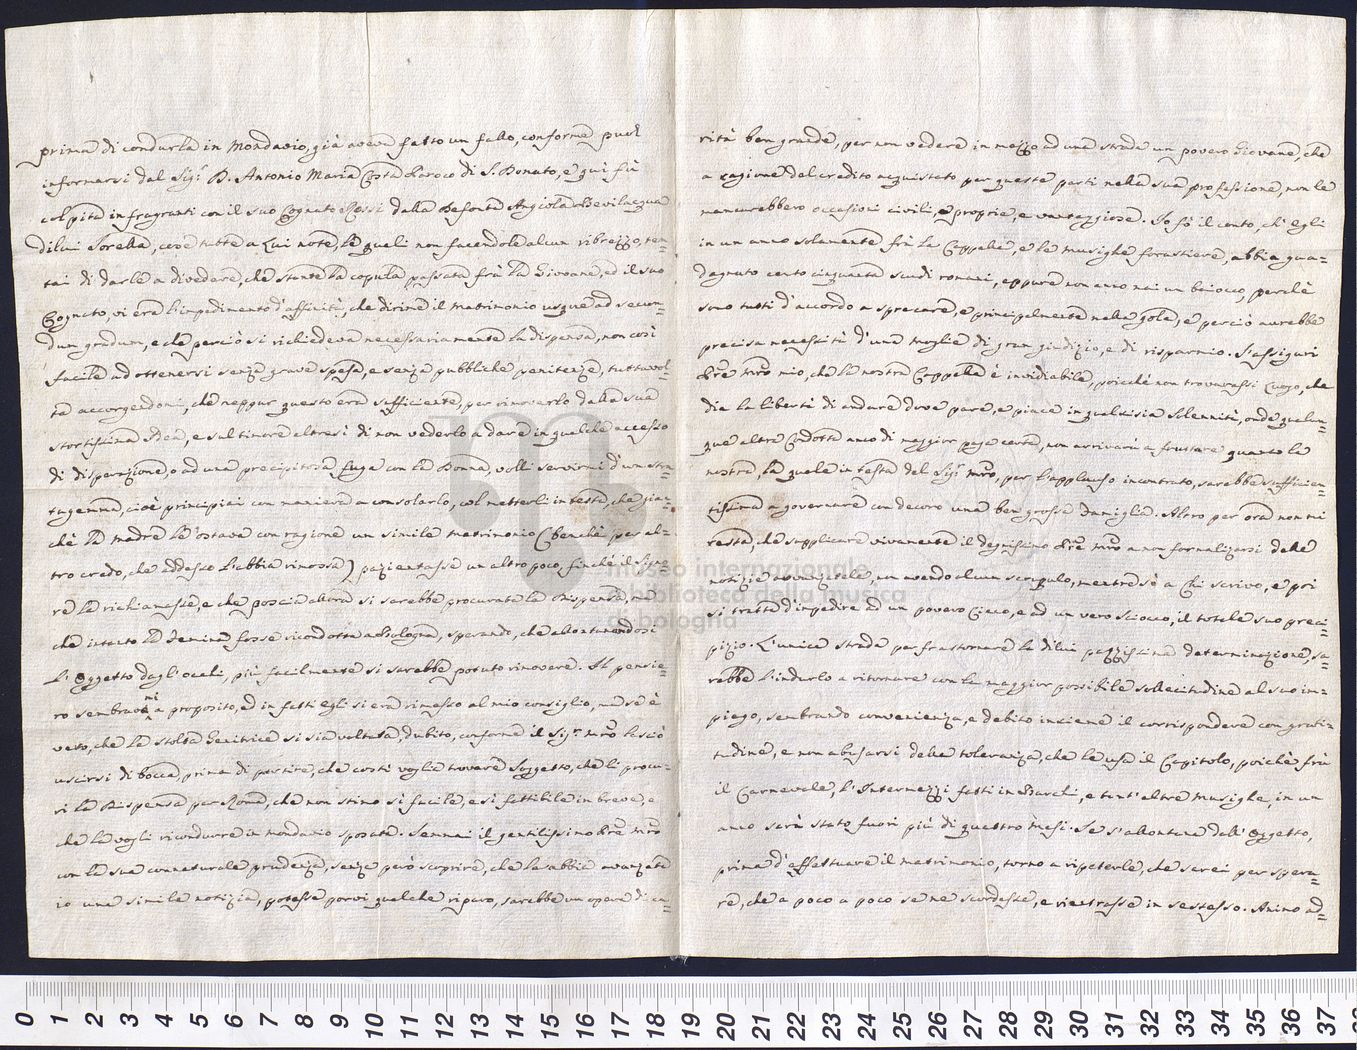 prima di condurla in Mondavio, già aveva fatto un fallo, conforme puol
informarsi dal Sig.r D. Antonio Maria Costa Paroco di S. Donato, e qui fù
colpita in fragranti con il suo Cognato Rossi dalla Defonta Angiola Bevilacqua
di lui Sorella, cose tutte a Lui note, le quali non facendole alcun ribrezzo, ten=
tai di darle a divedere, che stante la copula passata frà la Giovane, ed il suo
Cognato, vi era l'impedimento d'affinità, che dirime il matrimonio usque ad secun=
dum gradum, e che perciò si richiedeva necessariamente la dispensa, non così
facile ad ottenersi senza grave spesa, e senza pubbliche penitenze, tuttavol=
ta accorgendomi, che neppur questo era sufficiente, per rimoverlo dalla sua
stortissima Idea, e sul timore altresì di non vederlo a dare in qualche accesso
di disperazione, o ad una precipitosa fuga con la Donna, volli servirmi d'un stra=
tagemma, cioè principiai con maniera a consolarlo, col metterli in testa, che gia=
chè la madre le ostava con ragione un simile matrimonio (benchè per al=
tro credo, che addesso l'abbia rimossa) pazientasse un altro poco, finchè il Sig.re
re la richiamasse, e che poscia allora si sarebbe procurata la Dispensa, ma
che intanto la femina fosse ricondotta a Bologna, sperando, che allontanandosi
l'Oggetto dagl'occhi, più facilmente si sarebbe potuto rimovere. Il pensie=
ro sembrava mi a proposito, ed in fatti egli si era rimesso al mio consiglio, ma se è
vero, che la stolta Genitrice si sia voltata, dubito, conforme il Sig.r mro lasciò
uscirsi di bocca, prima di partire, che costì voglia trovare Soggetto, che li procu=
ri la Dispensa per Roma, che non stimo sì facile, e sì fattibile in breve, e
che la vogli ricondurre in mondavio sposata. Sennai il gentilissimo Pre mro
con la sua connaturale prudenza, senza però scoprire, che le abbia avanzata
io una simile notizia, potesse porvi qualche riparo, sarebbe un opera di ca=
rità ben grande, per non vedere in mezzo ad una strada un povero Giovane, che
a cagione del credito acquistato per queste parti nella sua professione, non le
mancarebbero occasioni civili, e proprie, e vantaggiose. Io fò il conto, ch'egli
in un anno solamente frà la Cappella, e le musighe forastiere, abbia gua=
dagnato cento cinquanta scudi romani, eppure non anno mai un baiocco, perchè
sono tutti d'accordo a sprecare, e principalmente nella gola, e perciò avrebbe
precisa necessità d'una moglie di gran giudizio, e di risparmio. S'assiguri
Pre mro mio, che la nostra Cappella è invidiabile, poicchè non trovarassi luogo, che
dia la libertà di andare dove pare, e piace in qualsisia solennità, onde qualun=
que altra Condotta anco di maggior paga certa, non arrivarà a fruttare quanto la
nostra, la quale in testa del Sig.r mro, per l'applauso incontrato, sarebbe sufficien=
tissima a governare con decoro una ben grossa Famiglia. Altro per ora non mi
resta, che supplicare vivamente il degnissimo Pre mro a non formalizarsi delle
notizie avanzatele, non avendo alcun scrupolo, mentre sò a Chi scrivo, e poi
si tratta d'impedire ad un povero Cieco, e ad un vero sciocco, il totale suo preci=
pizio. L'unica strada per frastornare la di lui pazzissima determinazione, sa=
rebbe l'indurlo a ritornare con la maggior possibile sollecitudine al suo im=
piego, sembrando convenienza, e debito insieme il corrispondere con grati=
tudine, e non abusarsi della toleranza, che le usa il Capitolo, poichè frà
il Carnevale, l'Intermezzi fatti in Barchi, e tant'altre musighe, in un
anno sarà stato fuori più di quattro mesi. Se s'allontana dall'Oggetto,
prima d'effettuare il matrimonio, torno a ripeterle, che sarei per spera=
re, che a poco a poco se ne scordasse, e rientrasse in se stesso. Animo ad=
museo internazionale
e biblioteca della musica
di bologna
0 1 2 3 4 5 6 7 8 9 10 11 12 13 14 15 16 17 18 19 20 21 22 23 24 25 26 27 28 29 30 31 32 33 34 35 36 37